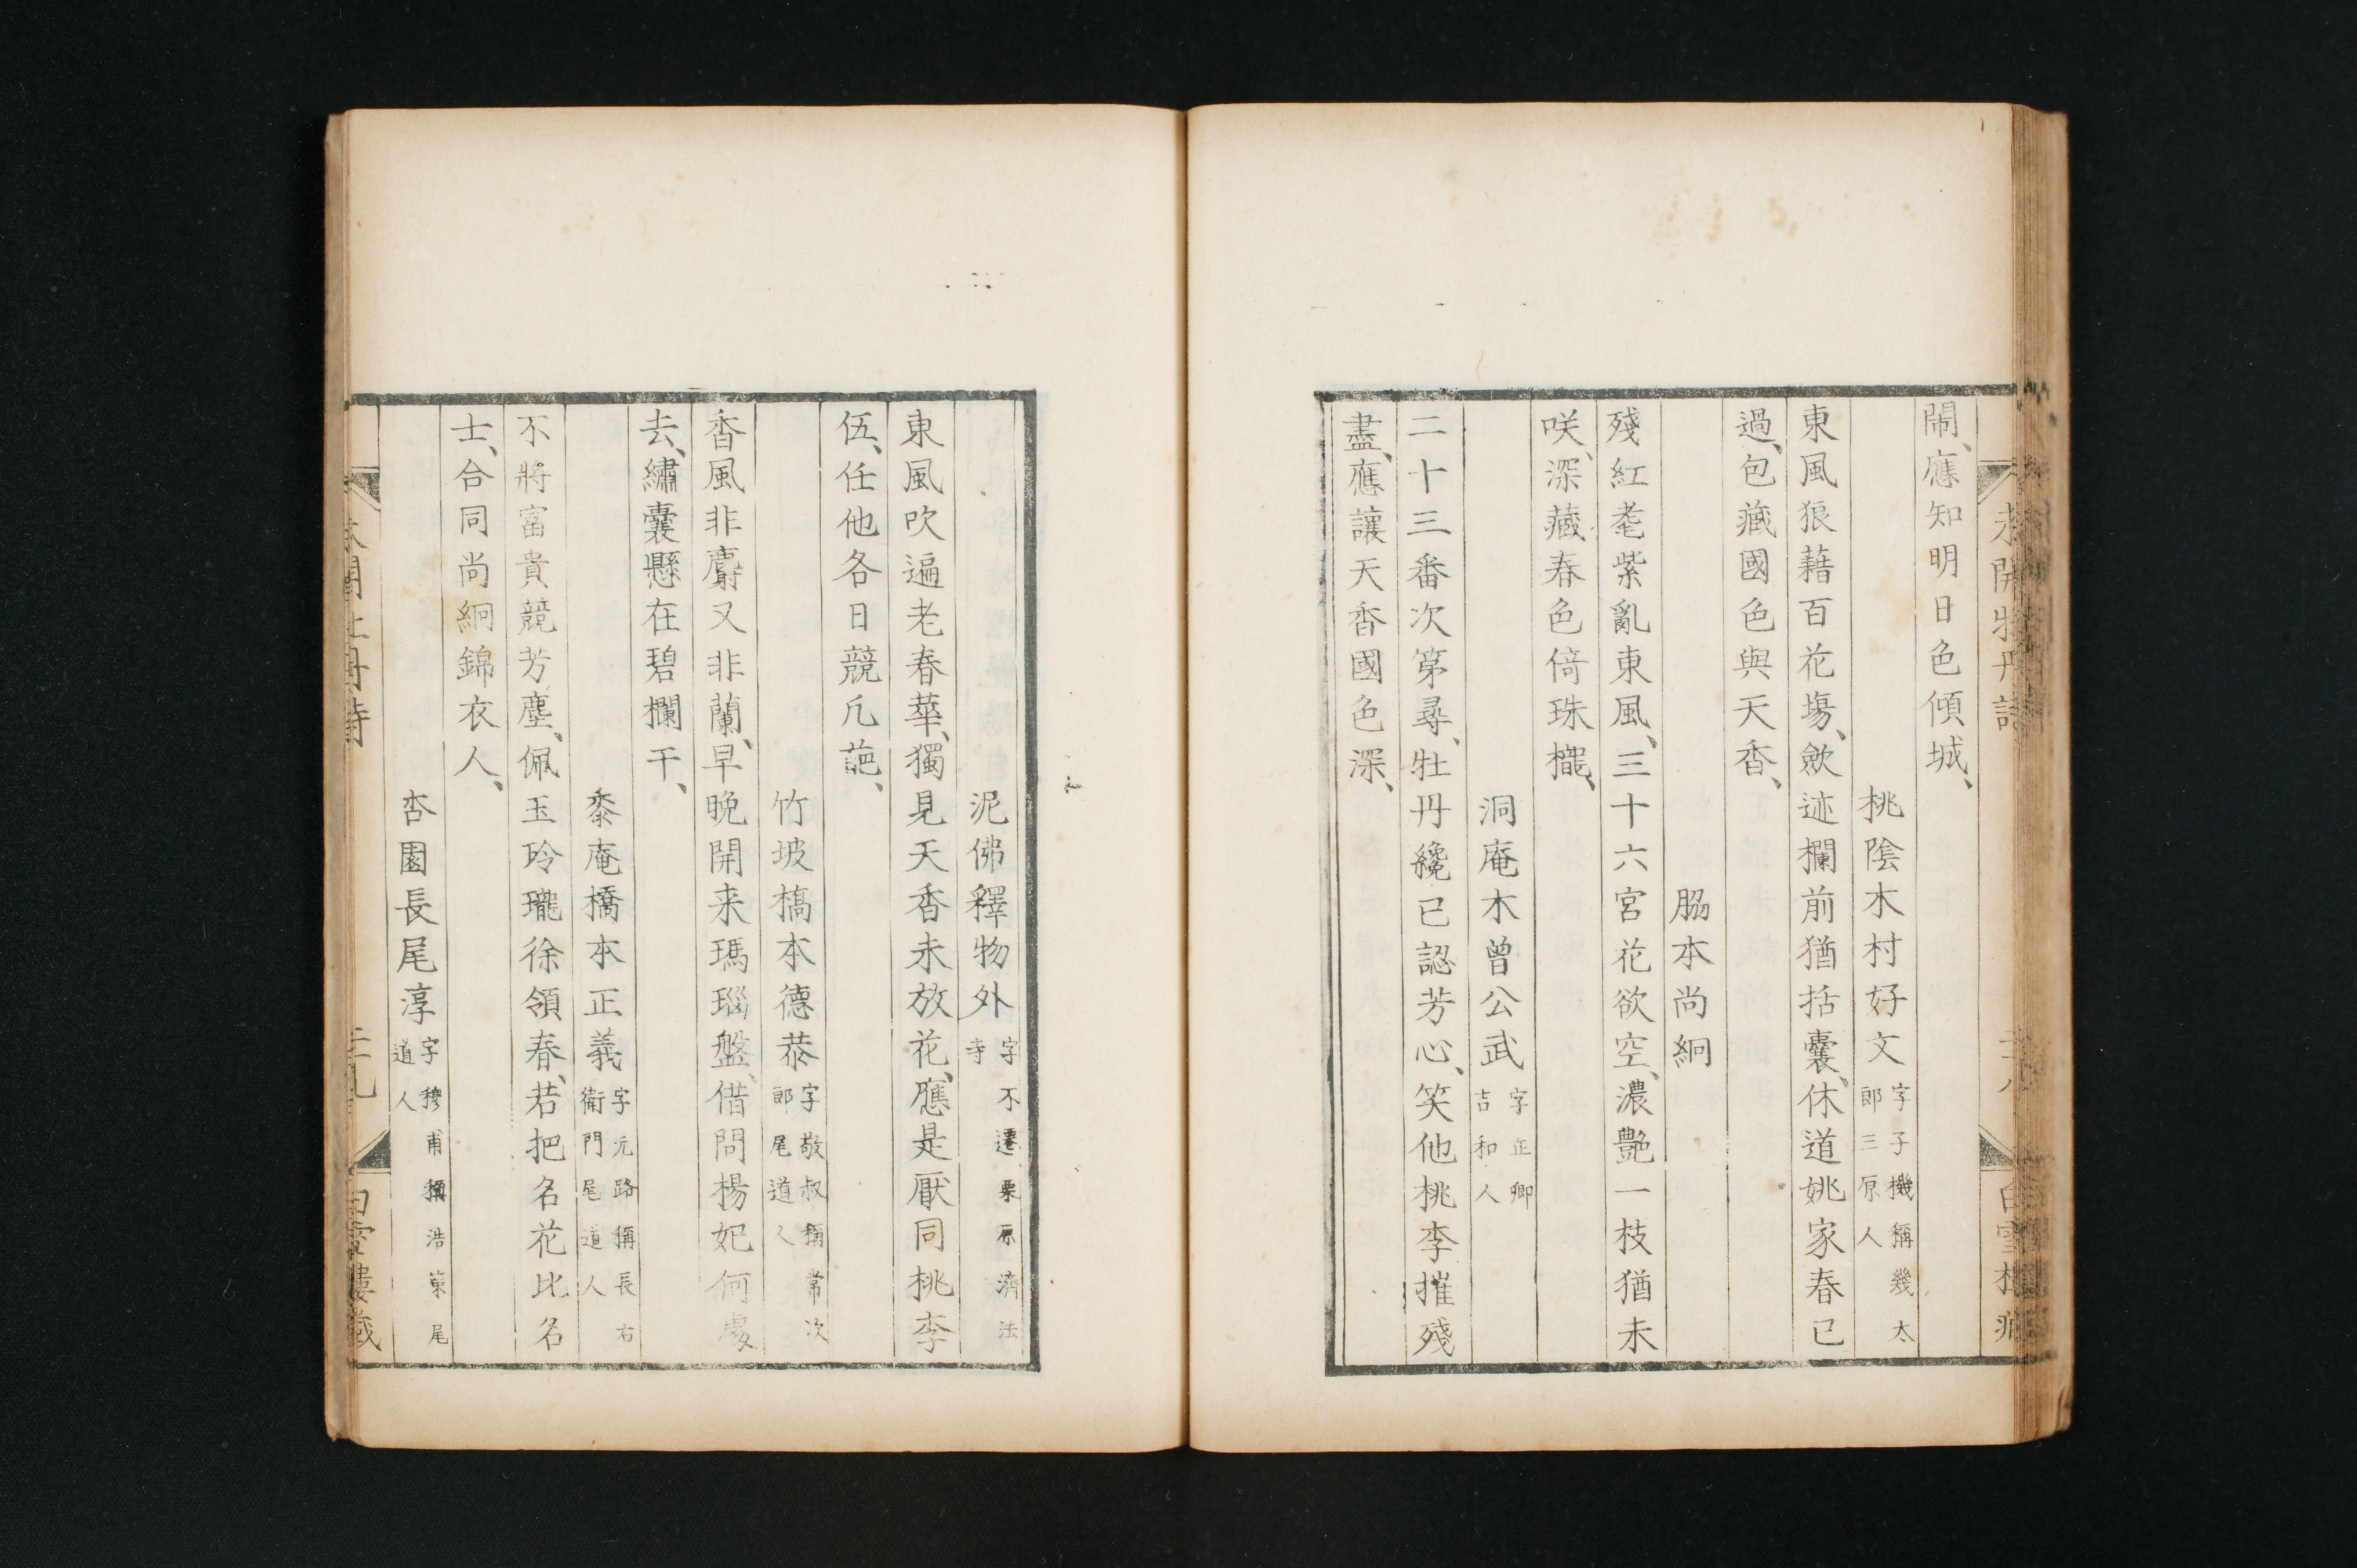 未開牡丹詩
鬧、應知明日色傾城、
桃陰木村好文 字子機稱幾太郎三原人
東風狼藉百花塲、斂迹欄前猶括囊、休道姚家春已
過、包藏國色與天香、
脇本尚絅
殘紅耄紫亂東風、三十六宮花欲空、濃艷一枝猶未
咲、深藏春色倚珠櫳、
洞庵木曾公武 字正卿吉和人
二十三番次第尋、牡丹纔已認芳心、笑他桃李摧殘
盡、應讓天香國色深、
泥佛釋物外 字不遷栗原濟法寺
東風吹遍老春華、獨見天香未放花、應是厭同桃李
伍、任他各日競凡葩、
竹坡橋本德恭 字敬叔稱常次郎尾道人
香風非麝又非蘭、早晚開来瑪瑙盤、借問楊妃何處
去、繡囊懸在碧欄干、
黍庵橋本正義 字元路稱長右衞門尾道人
不將富貴競芳塵、佩玉玲瓏徐領春、若把名花比名
士、合同尚絅錦衣人、
杏園長尾淳 字穆甫稱浩菓尾道人
未開牡丹詩
二九
白雪樓藏